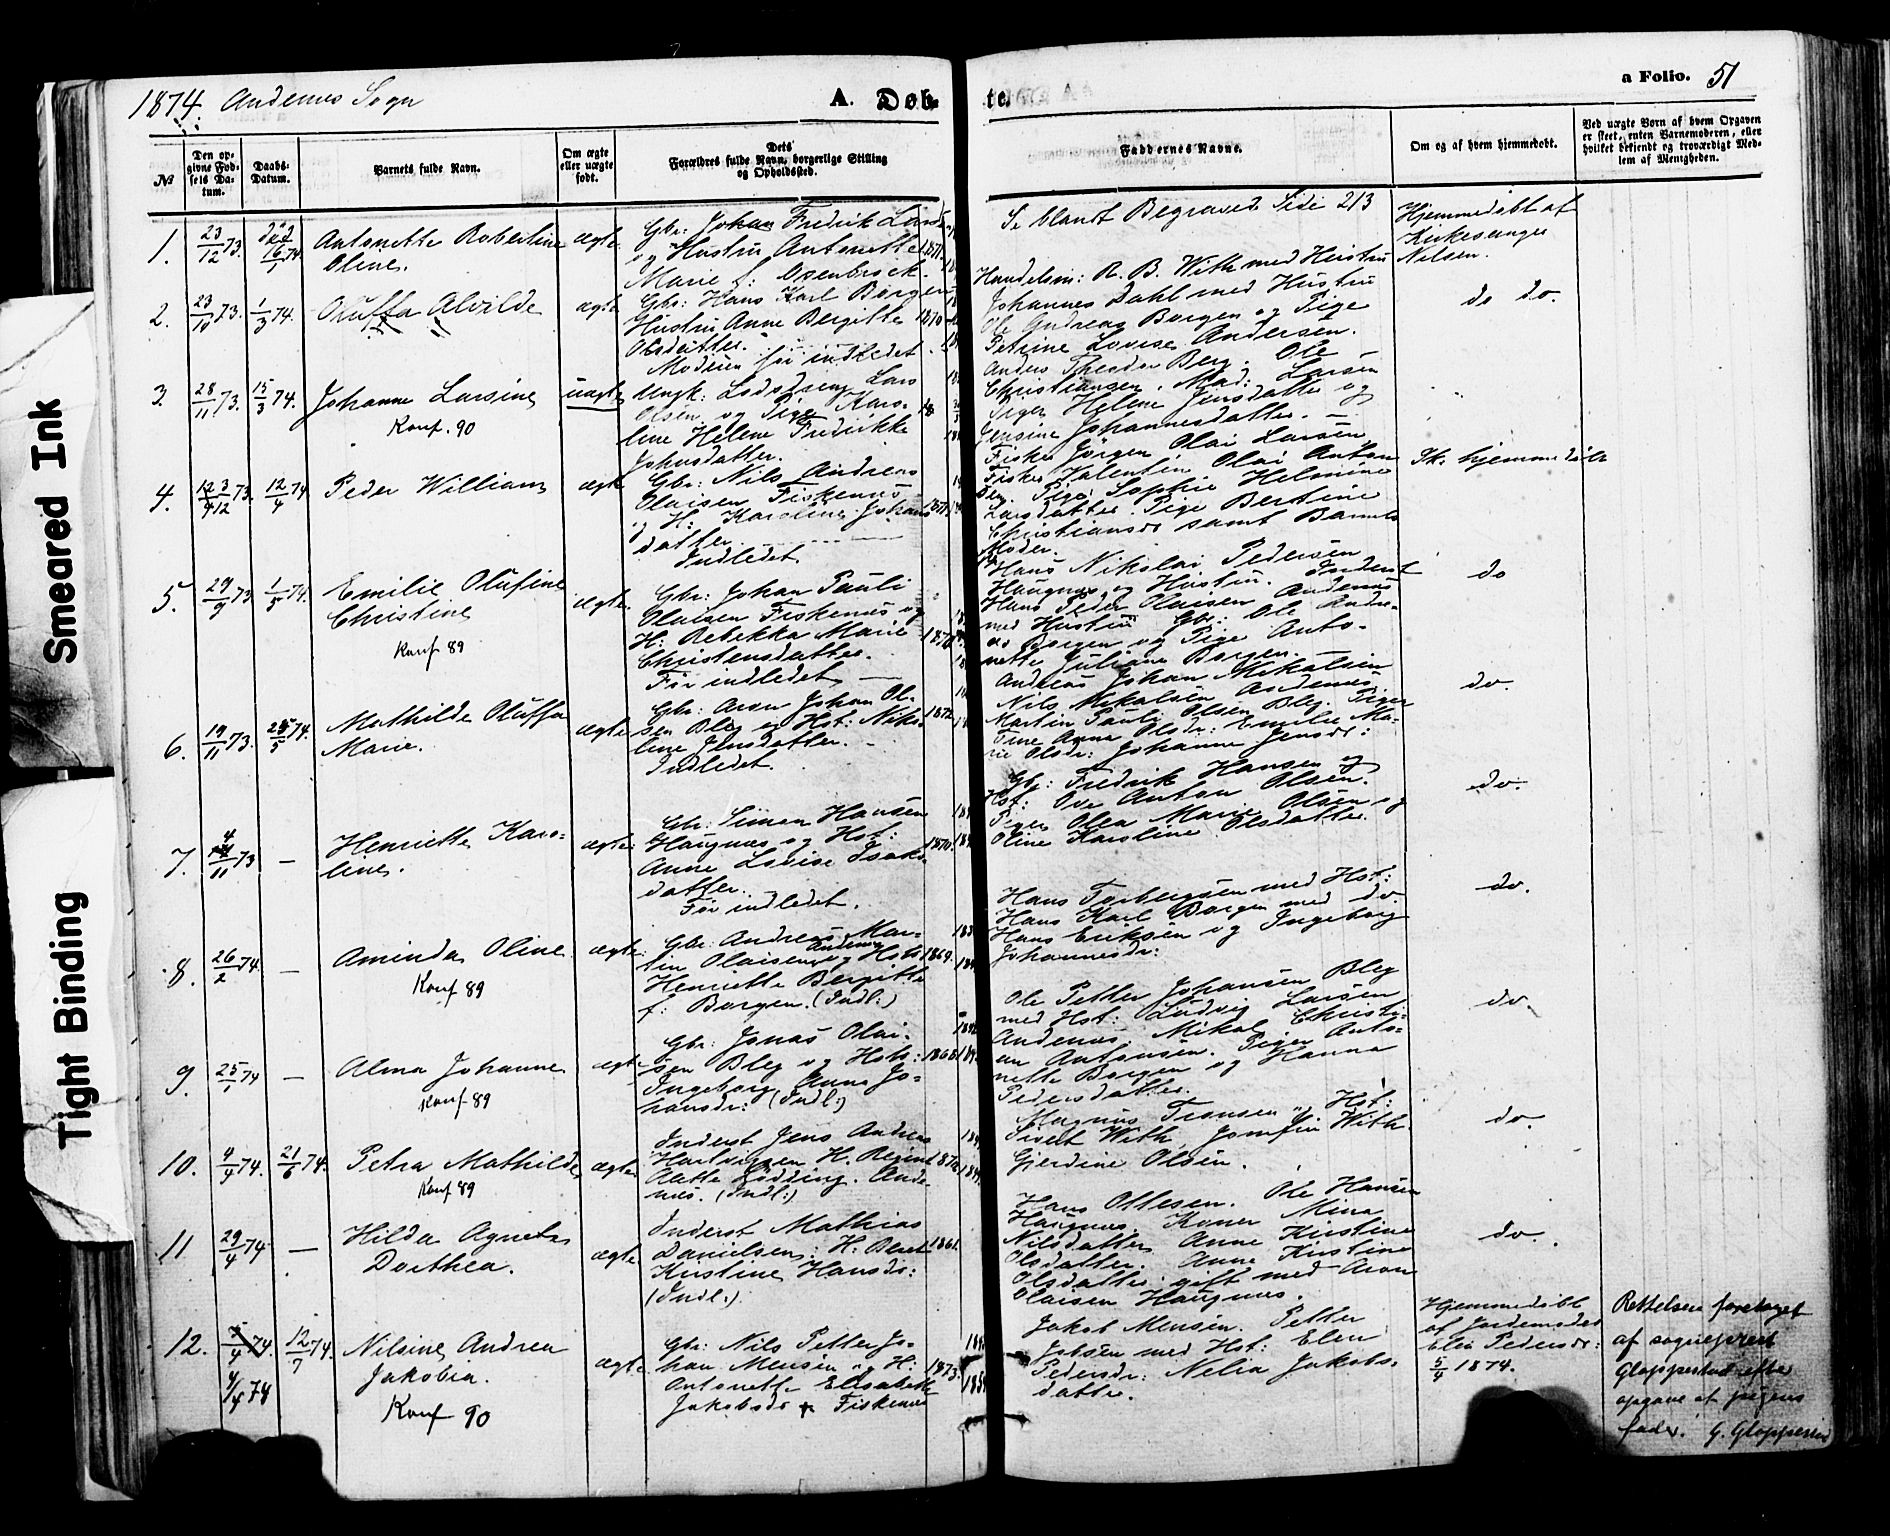 1874. Andenes Sogn
A. Døb-
te.
a Folio. 51
№
Den op-
givne Fød-
sels Da-
tum.
Daabs-
Datum.
Barnets fulde Navn.
Om ægte
eller uægte
født.
Dets
Forældres fulde Navn, borgerlige Stilling
og Opholdssted.
Faddernes Navne.
Om og af hvem hjemmedøbt.
Ved uægte Børn af hvem Opgaven
er skeet, enten Barnemoderen, eller
hvilket bekjendt og troværdigt Med-
lem af Menigheden.
1.
23/12 73.
død 16/1 74
Antonette Robertine
Oline.
ægte
Gbr: Johan Fredrik
og Hustru Antonette
Marie f:
1871.
Se blandt Begravede Side 213
Hjemmedøbt af
Kirkesanger
Nilsen.
2.
23/10 73.
1/3 74.
Oluffa Alvilde
ægte
Gbr: Hans Karl Borgen
Hustru Anne Bergitte
Olsdatter.
Moderen før indledet
1870
Handelsm: R. B. With med Hustru
Johannes Dahl med Hustru
Ole Andreas Borgen og Pige
Petrine Lovise Andersen.
do do.
3.
28/11 73.
15/3 74.
Johanne Larsine
Konf. 90
uægte
Ungk: Lars
Olsen og Pige Karo-
line Helene Fredrikke
Johnsdatter.
Anders Theodor Berg. Ole
Christiansen. Mad: Larsen
Piger Helene Jensdatter og
Jensine Johannesdatter. —
4.
12/4 74
Peder William
ægte
Gbr: Nils Andreas
Olaisen Fiskenes
og H: Karoline Johans
datter.
Indledet.
1871.
Fisker Jørgen Olai Larsen,
Fisker Valentin Olai Anton
sen. Pige Sophie Helmine
Larsdatter. Pige Bertine
Christiansdr samt Barnets
Moder.
Pr. hjemmedøbt
5.
29/9 73
1/5 74.
Emilie Olufine
Christine
Konf 89
ægte.
Gbr: Johan Pauli
Olaisen Fiskenes og
H: Rebekka Marie
Christensdatter.
Før indledet —
Hans Nikolai Pedersen
Haugnes og Hustru. Inderst
Hans Peder Olaisen Andenes
med Hustru Gbr: Ole Andre-
as Borgen og Pige Anto-
nette Juliane Borgen.
do
6.
19/11 73.
25/5 74.
Mathilde Oluffa
Marie.
ægte
Gbr: Aron Johan Ol-
sen Bleg og Hst: Niko-
line Jensdatter. —
Indledet.
1872
Andreas Johan Mikalsen
Nils Mikalsen Andenes
Martin Pauli Olsen Bleg. Piger
Trine Anna Olsdr: Emilie Ma-
rie Olsdr: Johanne Jensdr:
do.
7.
4/11 73
—
Henriette Karo-
line.
ægte
Gbr: Simon Hansen
Haugnes og Hst:
Anne Lovise Isaks-
datter.
Før indledet.
1870.
Gbr: Fredrik Hansen og
Hst: Ove Anton Olsen.
Piger Olea Marie Olsen og
Oline Karoline Olsdatter
do.
8.
26/2 74.
—
Aminda Oline
Konf 89
ægte
Gbr: Andreas Mar-
tin Olaisen Andenes og Hst:
Henriette Bergitte
f: Borgen. (Indl:)
1869.
Hans Torbergsen med Hst:
Hans Karl Borgen med do.
Hans Eriksen og Ingeborg
Johannesdr:
do.
9.
25/1 74
—
Alma Johanne
Konf 89
ægte
Gbr: Jonas Olai-
sen Bleg og Hst:
Ingeborg Anna Jo-
hansdr: (Indl:)
1868
Ole Petter Johansen Bleg
med Hst: Ludvig Larsen
Andenes Mikal Christi-
an Antonsen. Piger Anto-
nette Borgen og Hanna
Pedersdatter.
do.
10.
4/4 74.
21/6 74.
Petra Mathilde
Konf 89
ægte
Inderst Jens Andreas
Hartvigsen H.
Aande-
nes. (Indl:)
Magnus Fransen Hst:
Sivert With, Josefin With
Gjerdine Olsen.
do.
11
29/4 74
—
Hilda Agneta
Dorthea.
ægte
Inderst Mathias
Danielsen: H. Beret
Kristine Hansdr:
(Indl:)
1861.
Hans Ottesen. Ole Hansen
Haugnes. Koner Mina
Nilsdatter Anne Kirstine
Olsdatter. Anne Kirstine
Olsdatter gift med Aron
Olaisen Haugnes.
do.
12.
5/4 74.
4/4 74
12/7 74.
Nilsine Andrea
Jakobia.
Konf 90
ægte
Gbr: Nils Petter Jo-
han Mensen og H:
Antonette Elisabeth
Jakobsdr Fiskenes
1873.
Jakob Mensen. Petter
Jobsen med Hst: Elen
Pedersdr: Nelia Jakobs-
datter.
Hjemmedøbt
af Jordemoder
Elen Pedersdr:
5/4 1874.
Rettelsen foretaget
af sogneprest
Gloppestad efter
opgave af pigens
fader.
Smeared Ink
Tight Binding